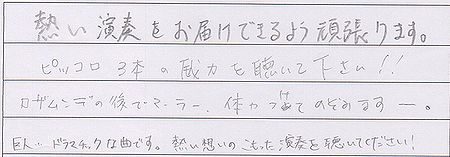 熱い演奏をお届けできるよう頑張ります。
ピッコロ3本の威力を聴いて下さい!!
ロザムンデの後でマーラー、体力満てのぞみますー。
巨人…ドラマチックな曲です。熱い想いのこもった演奏を聴いてください!